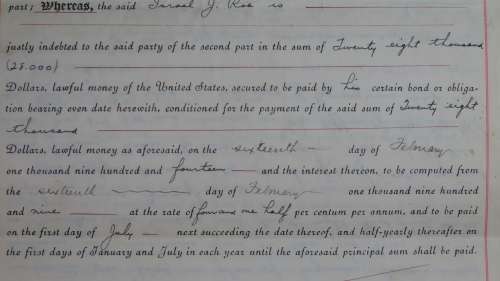 part; Whereas, the said Israel J. Roe is
justly indebted to the said party of the second part in the sum of Twenty eight thousand
(28.000)
Dollars, lawful money of the United States, secured to be paid by his certain bond or obliga-
tion bearing even date herewith, conditioned for the payment of the said sum of Twenty eight
thousand
Dollars, lawful money as aforesaid, on the sixteenth day of February
one thousand nine hundred and fourteen and the interest thereon, to be computed from
the sixteenth day of February one thousand nine hundred
and nine at the rate of four and one half per centum per annum, and to be paid
on the first day of July next succeeding the date thereof, and half-yearly thereafter on
the first days of January and July in each year until the aforesaid principal sum shall be paid.